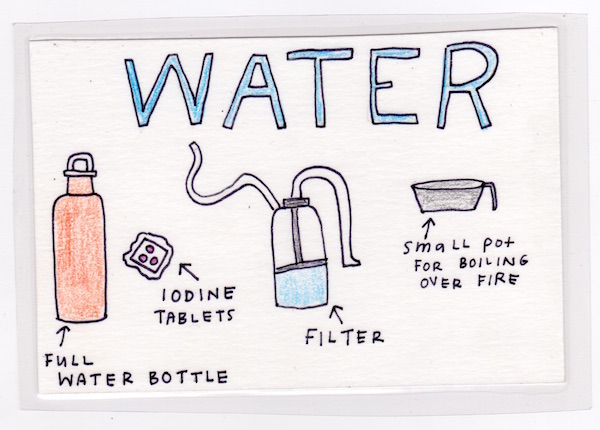 WATER
IODINE
TABLETS
FULL
WATER BOTTLE
FILTER
Small Pot
FOR BOILING
OVER FIRE